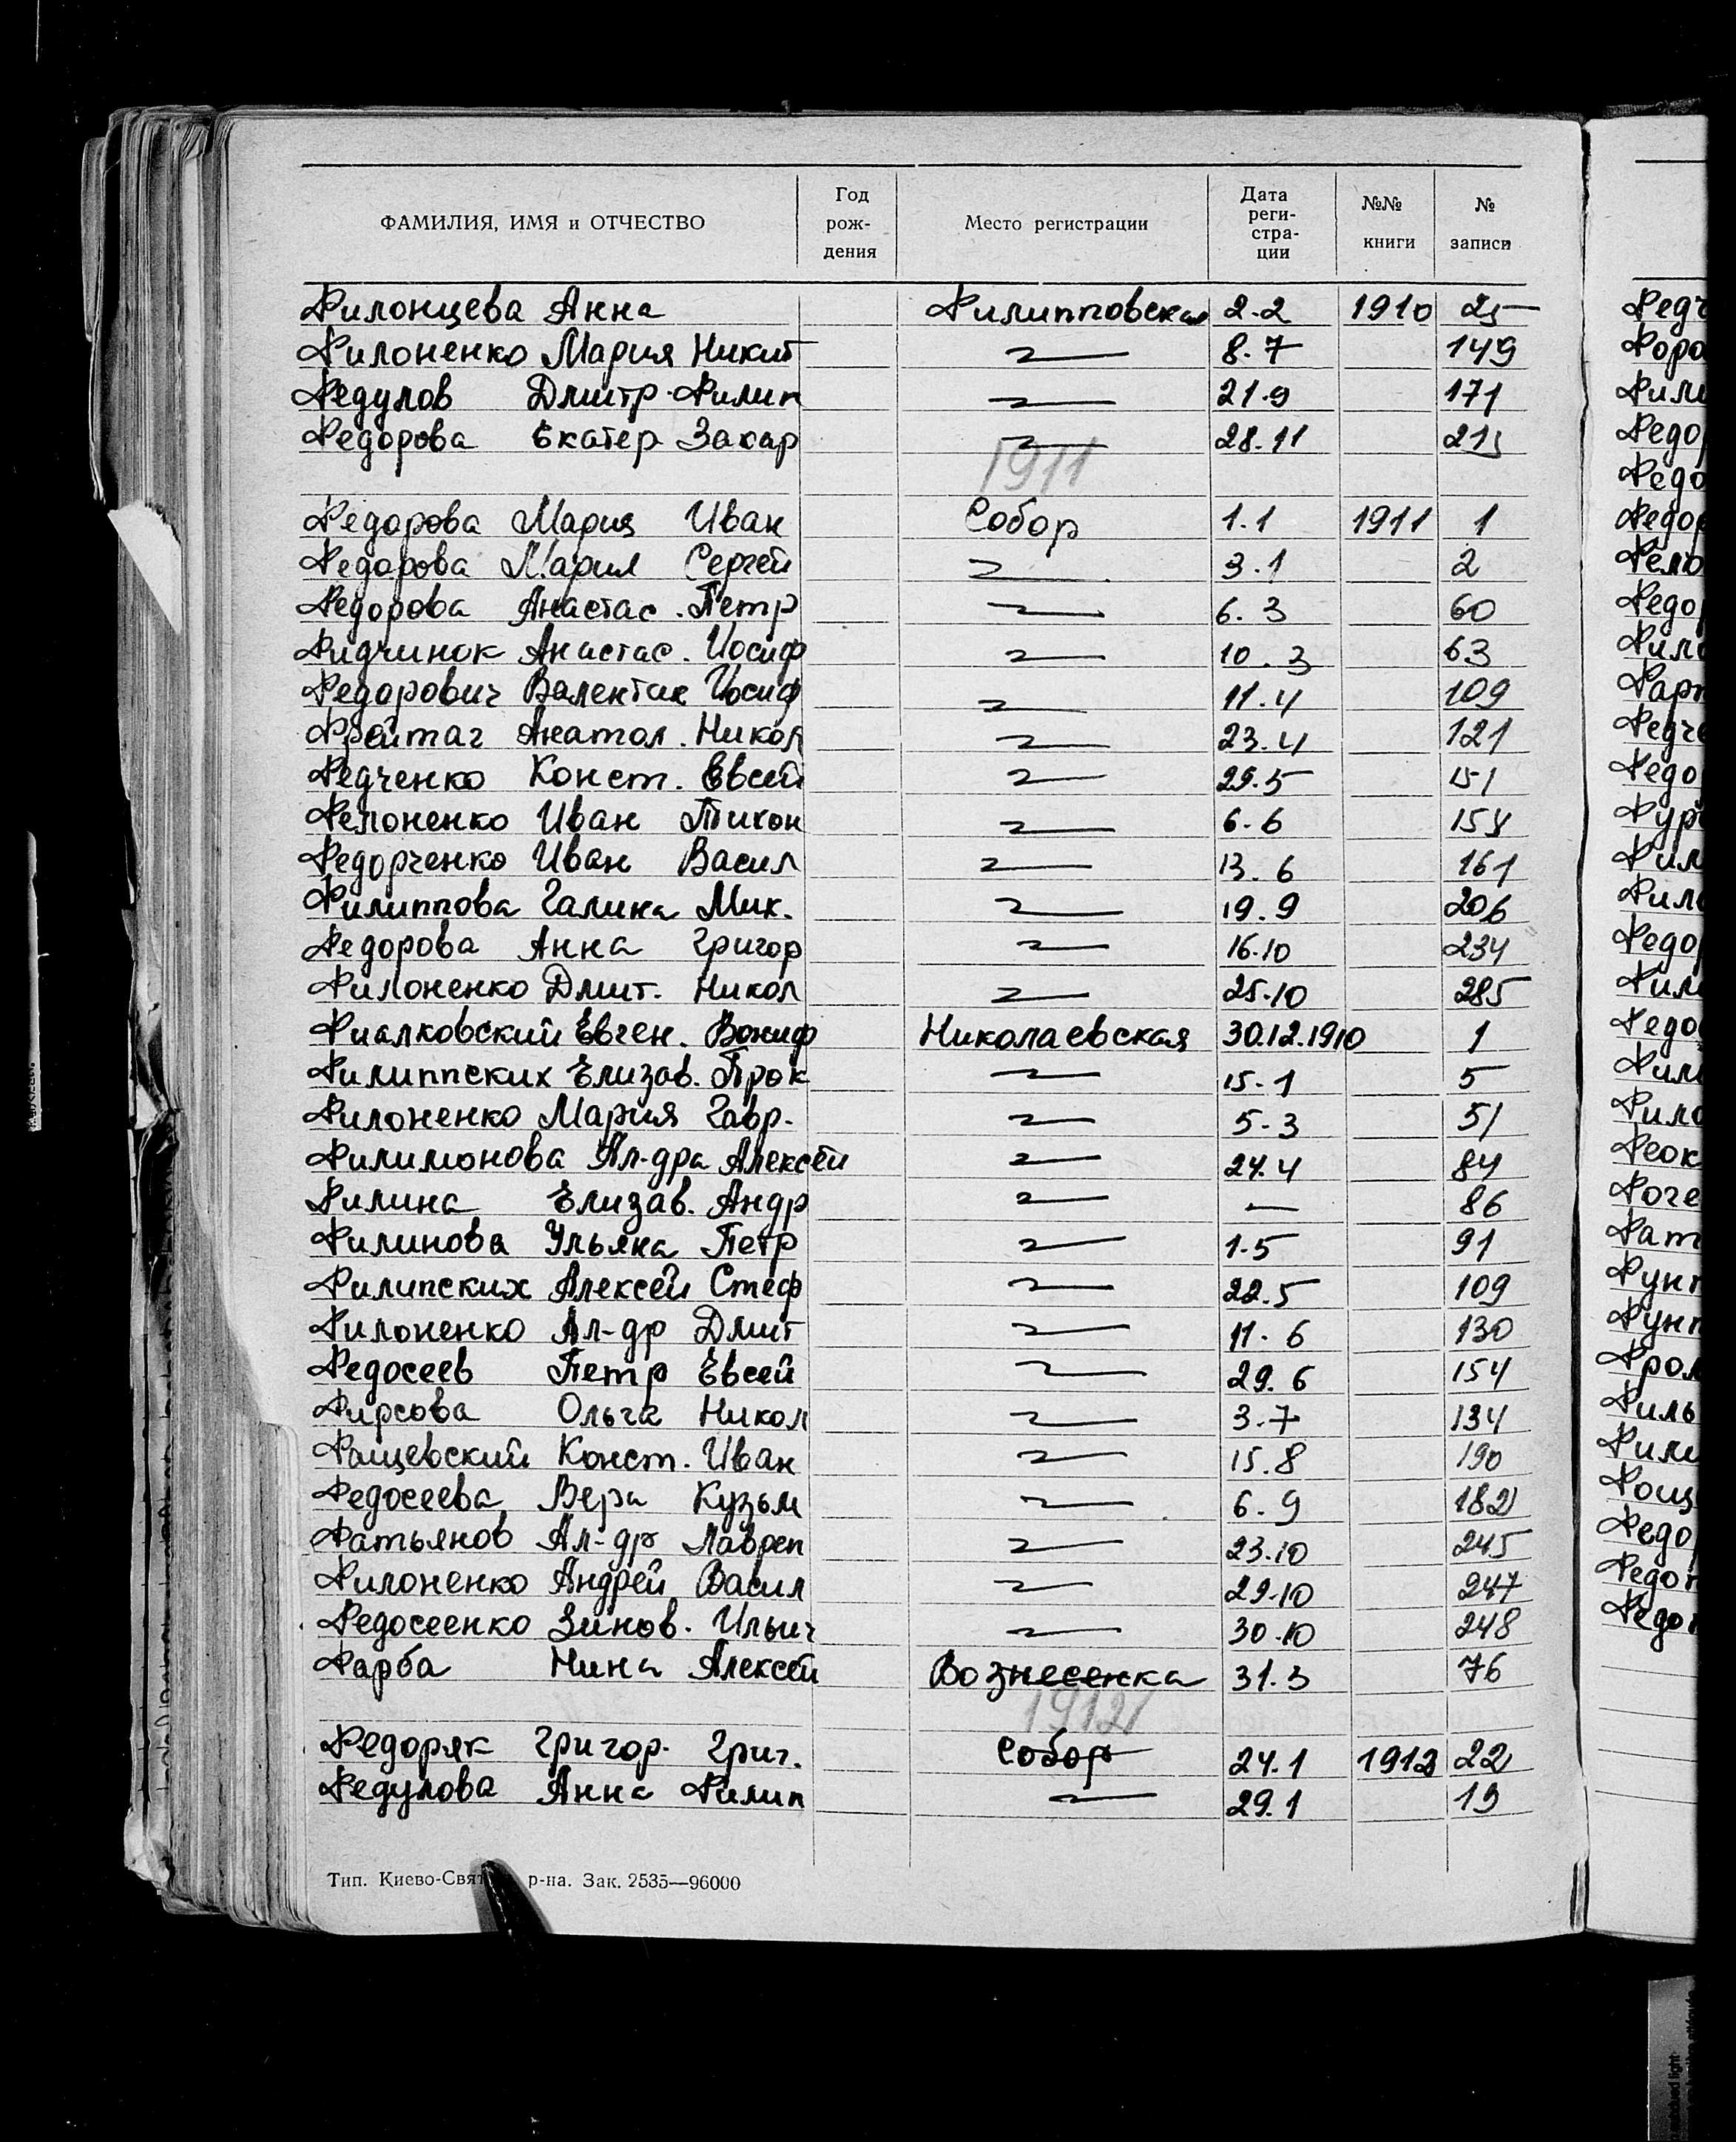 ФАМИЛИЯ, ИМЯ и ОТЧЕСТВО Год рож- дения Место регистрации Дата реги- стра- ции №№ книги № записи
Филонцева Анна Филипповская 2.2 1910 25
Филоненко Мария Никит 8.7 149
Федулов Дмитр. Филип 21.9 171
Федорова Екатер Захар 28.11 215
1911
Федорова Мария Иван Собор 1.1 1911 1
Федорова Мария Сергей 3.1 2
Федорова Анастас. Петр 6.3 60
Фидчинок Анастас. Иосиф 10.3 63
Федорович Валентин Иосиф 11.4 109
Фрейтаг Анатол. Никол 23.4 121
Федченко Конст. Евсей 29.5 151
Фелоненко Иван Тихон 6.6 154
Федорченко Иван Васил 13.6 161
Филиппова Галина Мик. 19.9 206
Федорова Анна Григор 16.10 234
Филоненко Дмит. Никол 25.10 285
Фиалковский Евген. Николаевская 30.12.1910 1
Филиппских Елизав. Прок 15.1 5
Филоненко Мария Гавр. 5.3 51
Филимонова Ал-дра Алексей 24.4 84
Филина Елизав. Андр — 86
Филинова Ульяна Петр 1.5 91
Филипских Алексей Стеф 22.5 109
Филоненко Ал-др Дмит 11.6 130
Федосеев Петр Евсей 29.6 154
Фирсова Ольга Никол 3.7 134
Фащевский Конст. Иван 15.8 190
Федосеева Вера Кузьм 6.9 182
Фатьянов Ал-др Лаврен 23.10 245
Филоненко Андрей Васил 29.10 247
Федосеенко Зинов. Ильич 30.10 248
Фарба Нина Алексей Вознесенка 31.3 76
1912
Федоряк Григор. Григ. Собор 24.1 1912 22
Федулова Анна Филип 29.1 19
Тип. Киево-Свят р-на. Зак. 2535—96000